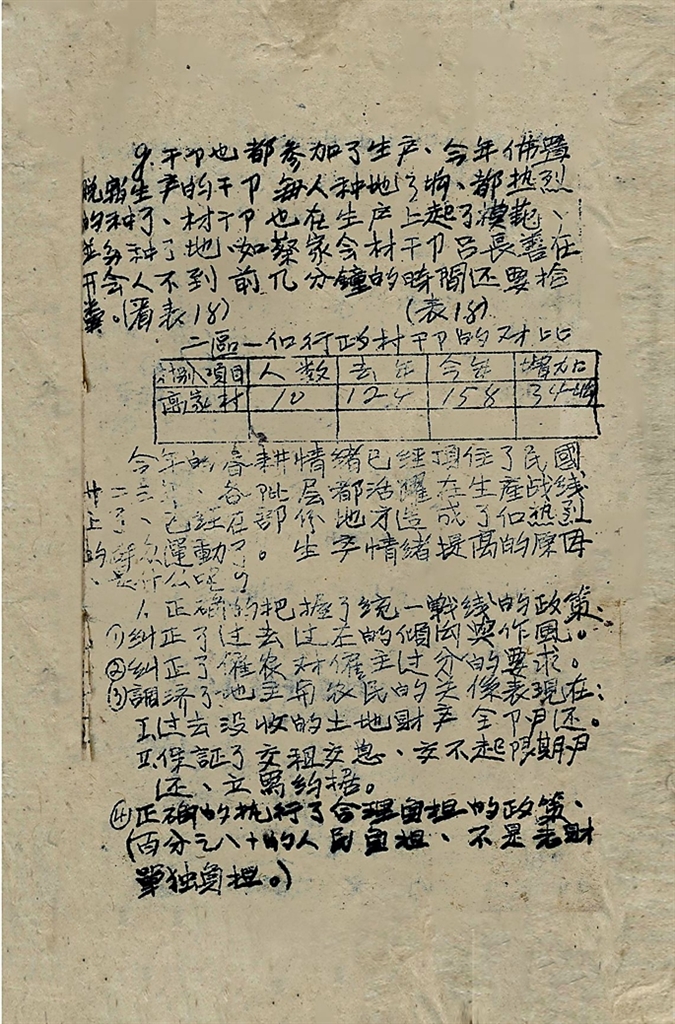 9.干卩也都参加了生产、今年佈置
脱離生产的干卩每人种地3垧、都热烈
的种了、村干卩也在生产上起了模範、
並多种了地、如蔡家会村干卩吕長善在
开会人不到前几分鐘的時間还要拾
粪。(看表18) (表18)
二區一個行政村干卩的对比
村別 項目 人数 去年 今年 增加
高家村 10 124 158 34垧
今年的春耕情緒已經頂住了民國
二三年、各阶层都活躍在生產战线
上了、已經在部份地方造成了個热烈
的群众運動了。生产情緒提高的原因
是什么呢?
1.正确的把握了统一戰线的政策、
①纠正了过去过左的傾向與作風。
②纠正了僱农对僱主过分的要求。
③調济了地主与农民的关係表現在:
I.过去没收的土地財产全卩归还。
II.保証了交租交息、交不起限期归
还、立寫约据。
④正确的执行了合理負担的政策、
(百分之八十的人民負担、不是老財
單独負担。)